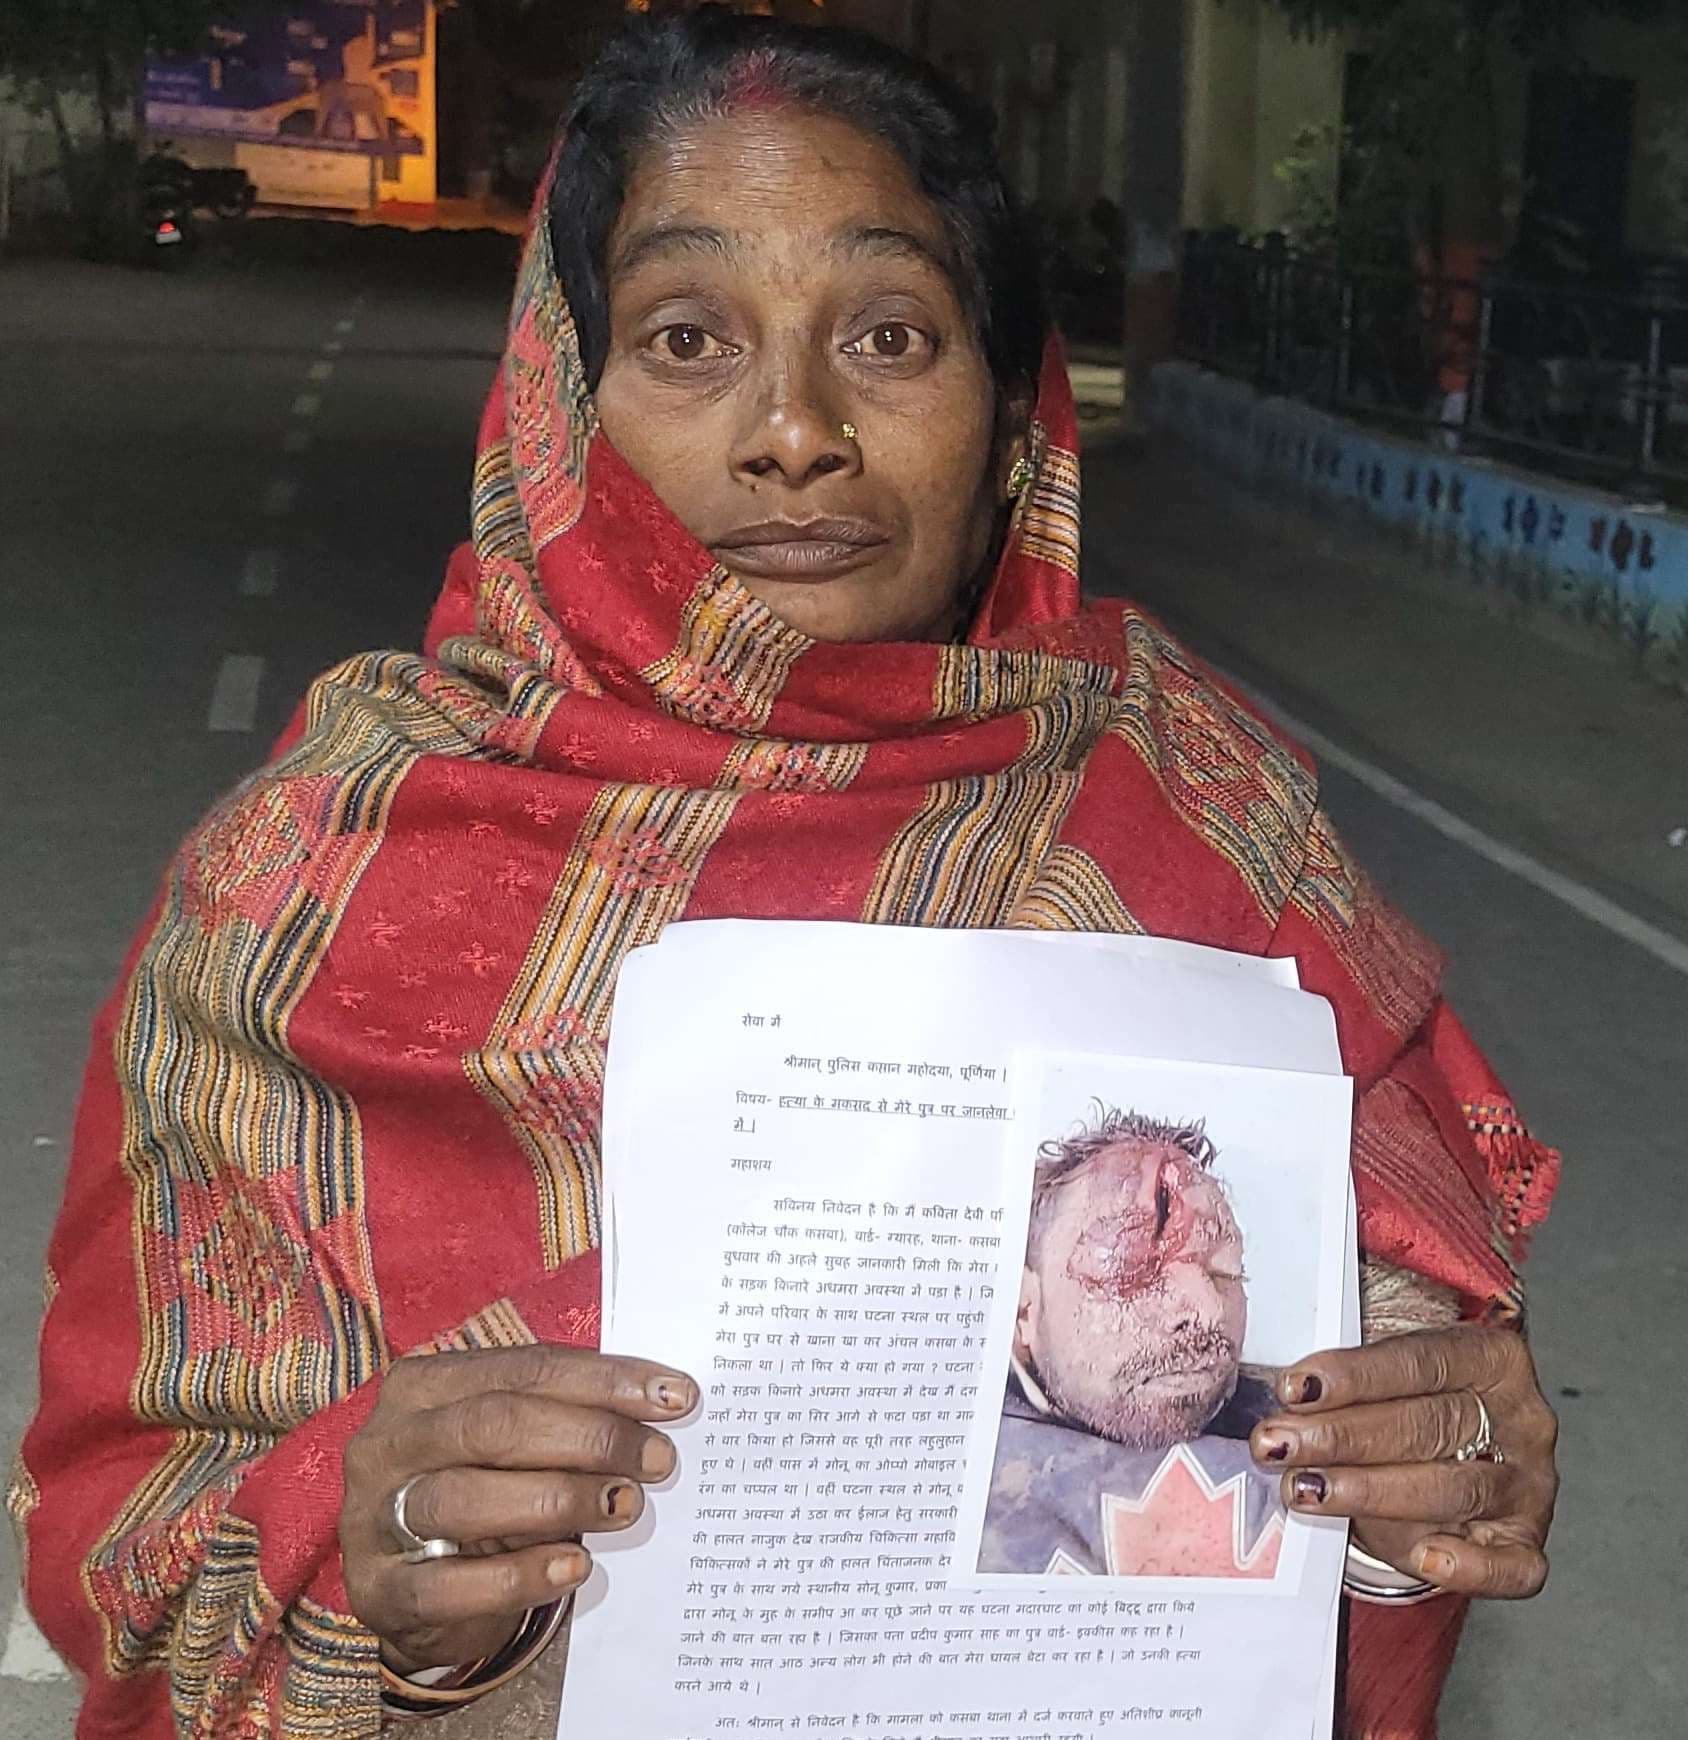 सेवा में
श्रीमान् पुलिस कप्तान महोदया, पूर्णिया |
विषय- हत्या के मकसद से मेरे पुत्र पर जानलेवा
में |
महाशय
सविनय निवेदन है कि मैं कविता देवी
(कॉलेज चौक कसबा), वार्ड- ग्यारह, थाना- कसबा
बुधवार की अहले सुबह जानकारी मिली कि मेरा
के सड़क किनारे अधमरा अवस्था में पड़ा है |
में अपने परिवार के साथ घटना स्थल पर पहुंची
मेरा पुत्र घर से खाना खा कर अंचल कसबा के
निकला था | तो फिर ये क्या हो गया ? घटना
को सड़क किनारे अधमरा अवस्था में देख मैं
जहाँ मेरा पुत्र का सिर आगे से फटा पड़ा था
से वार किया हो जिससे वह पूरी तरह लहुलुहान
हुए थे | वहीं पास में मोनू का ओप्पो मोबाइल
रंग का चप्पल था | वहीं घटना स्थल से मोनू
अधमरा अवस्था में उठा कर ईलाज हेतु सरकारी
की हालत नाजुक देख राजकीय चिकित्सा
चिकित्सकों ने मेरे पुत्र की हालत चिंताजनक
मेरे पुत्र के साथ गये स्थानीय सोनू कुमार,
द्वारा मोनू के मुह के समीप आ कर पूछे जाने पर यह घटना मदारघाट का कोई बिट्टू द्वारा किये
जाने की बात बता रहा है | जिसका पता प्रदीप कुमार साह का पुत्र वार्ड- इक्कीस कह रहा है |
जिनके साथ सात आठ अन्य लोग भी होने की बात मेरा घायल बेटा कर रहा है | जो उनकी हत्या
करने आये थे |
अतः श्रीमान् से निवेदन है कि मामला को कसबा थाना में दर्ज करवाते हुए अतिशीघ्र कानूनी